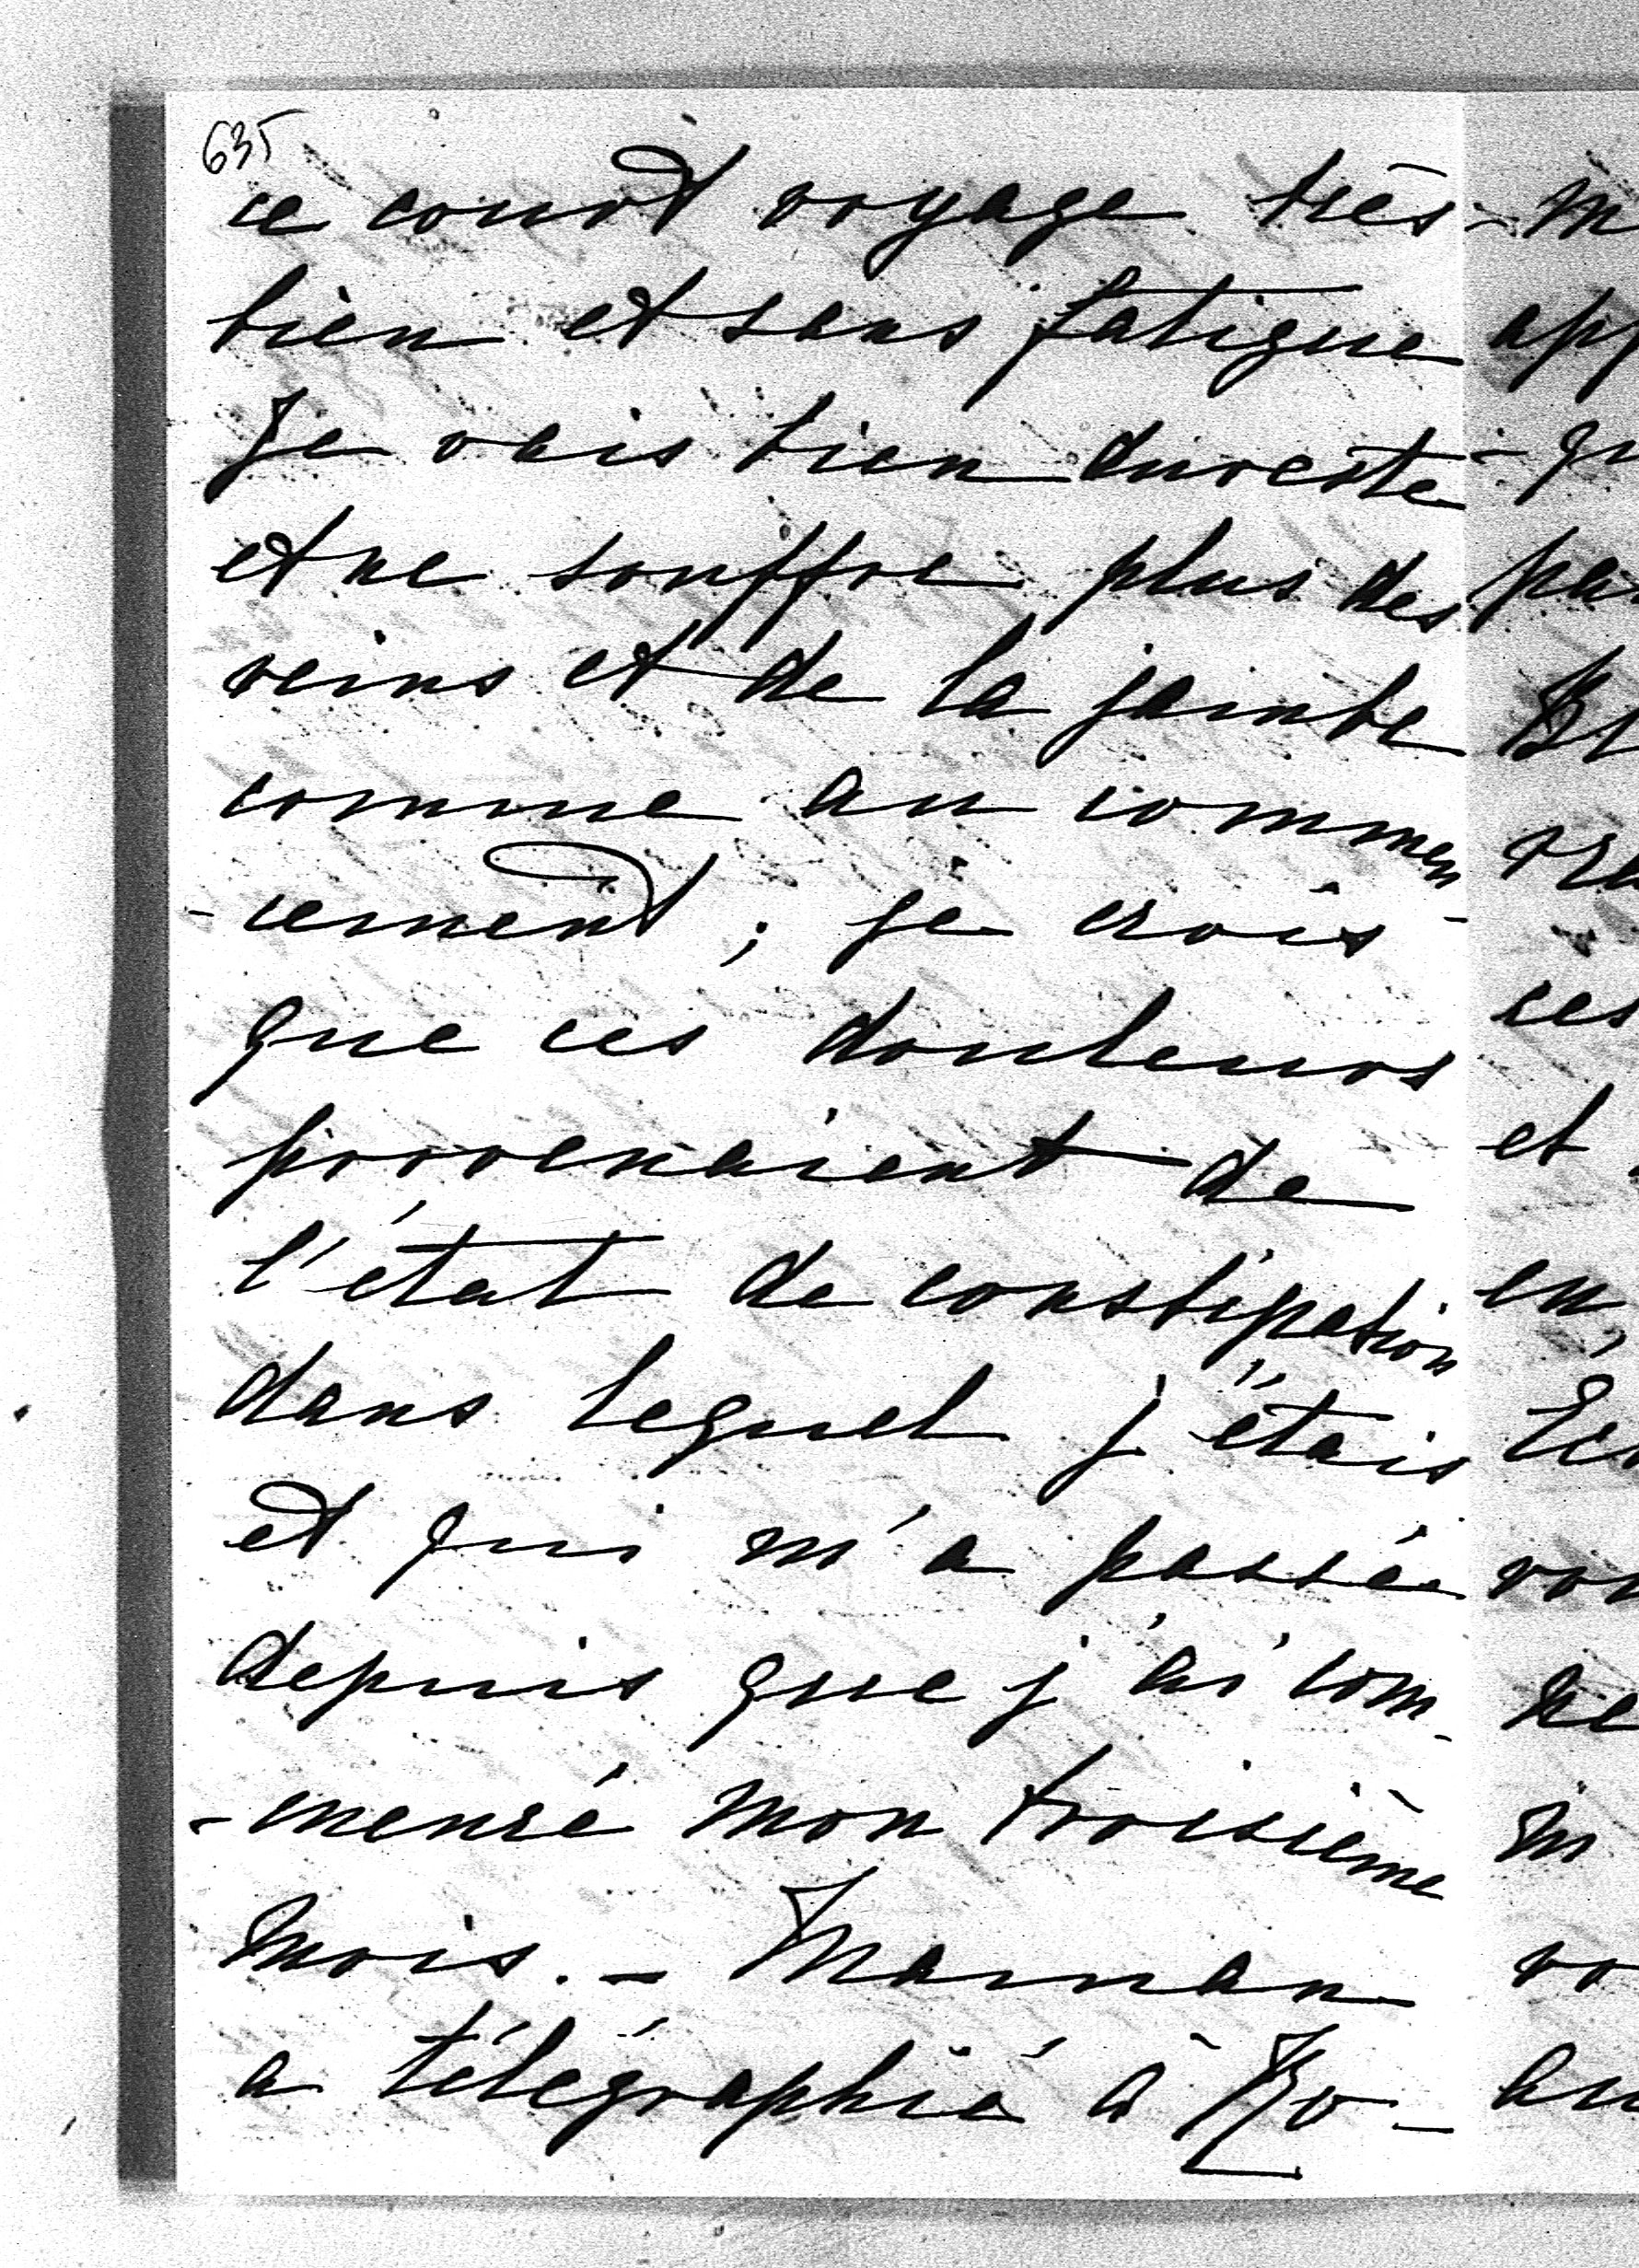 635
ce court voyage très-
bien et sans fatigue
Je vais bien dureste-
et ne souffre plus des
reins et de la jambe
comme au commen-
-cement ; je crois
que ces douleurs
provenaient de
l'état de constipation
dans lequel j'étais
et qui m'a passée
depuis que j'ai com-
-mencé mon troisième
mois. - Maman
a télégraphié à Ro-